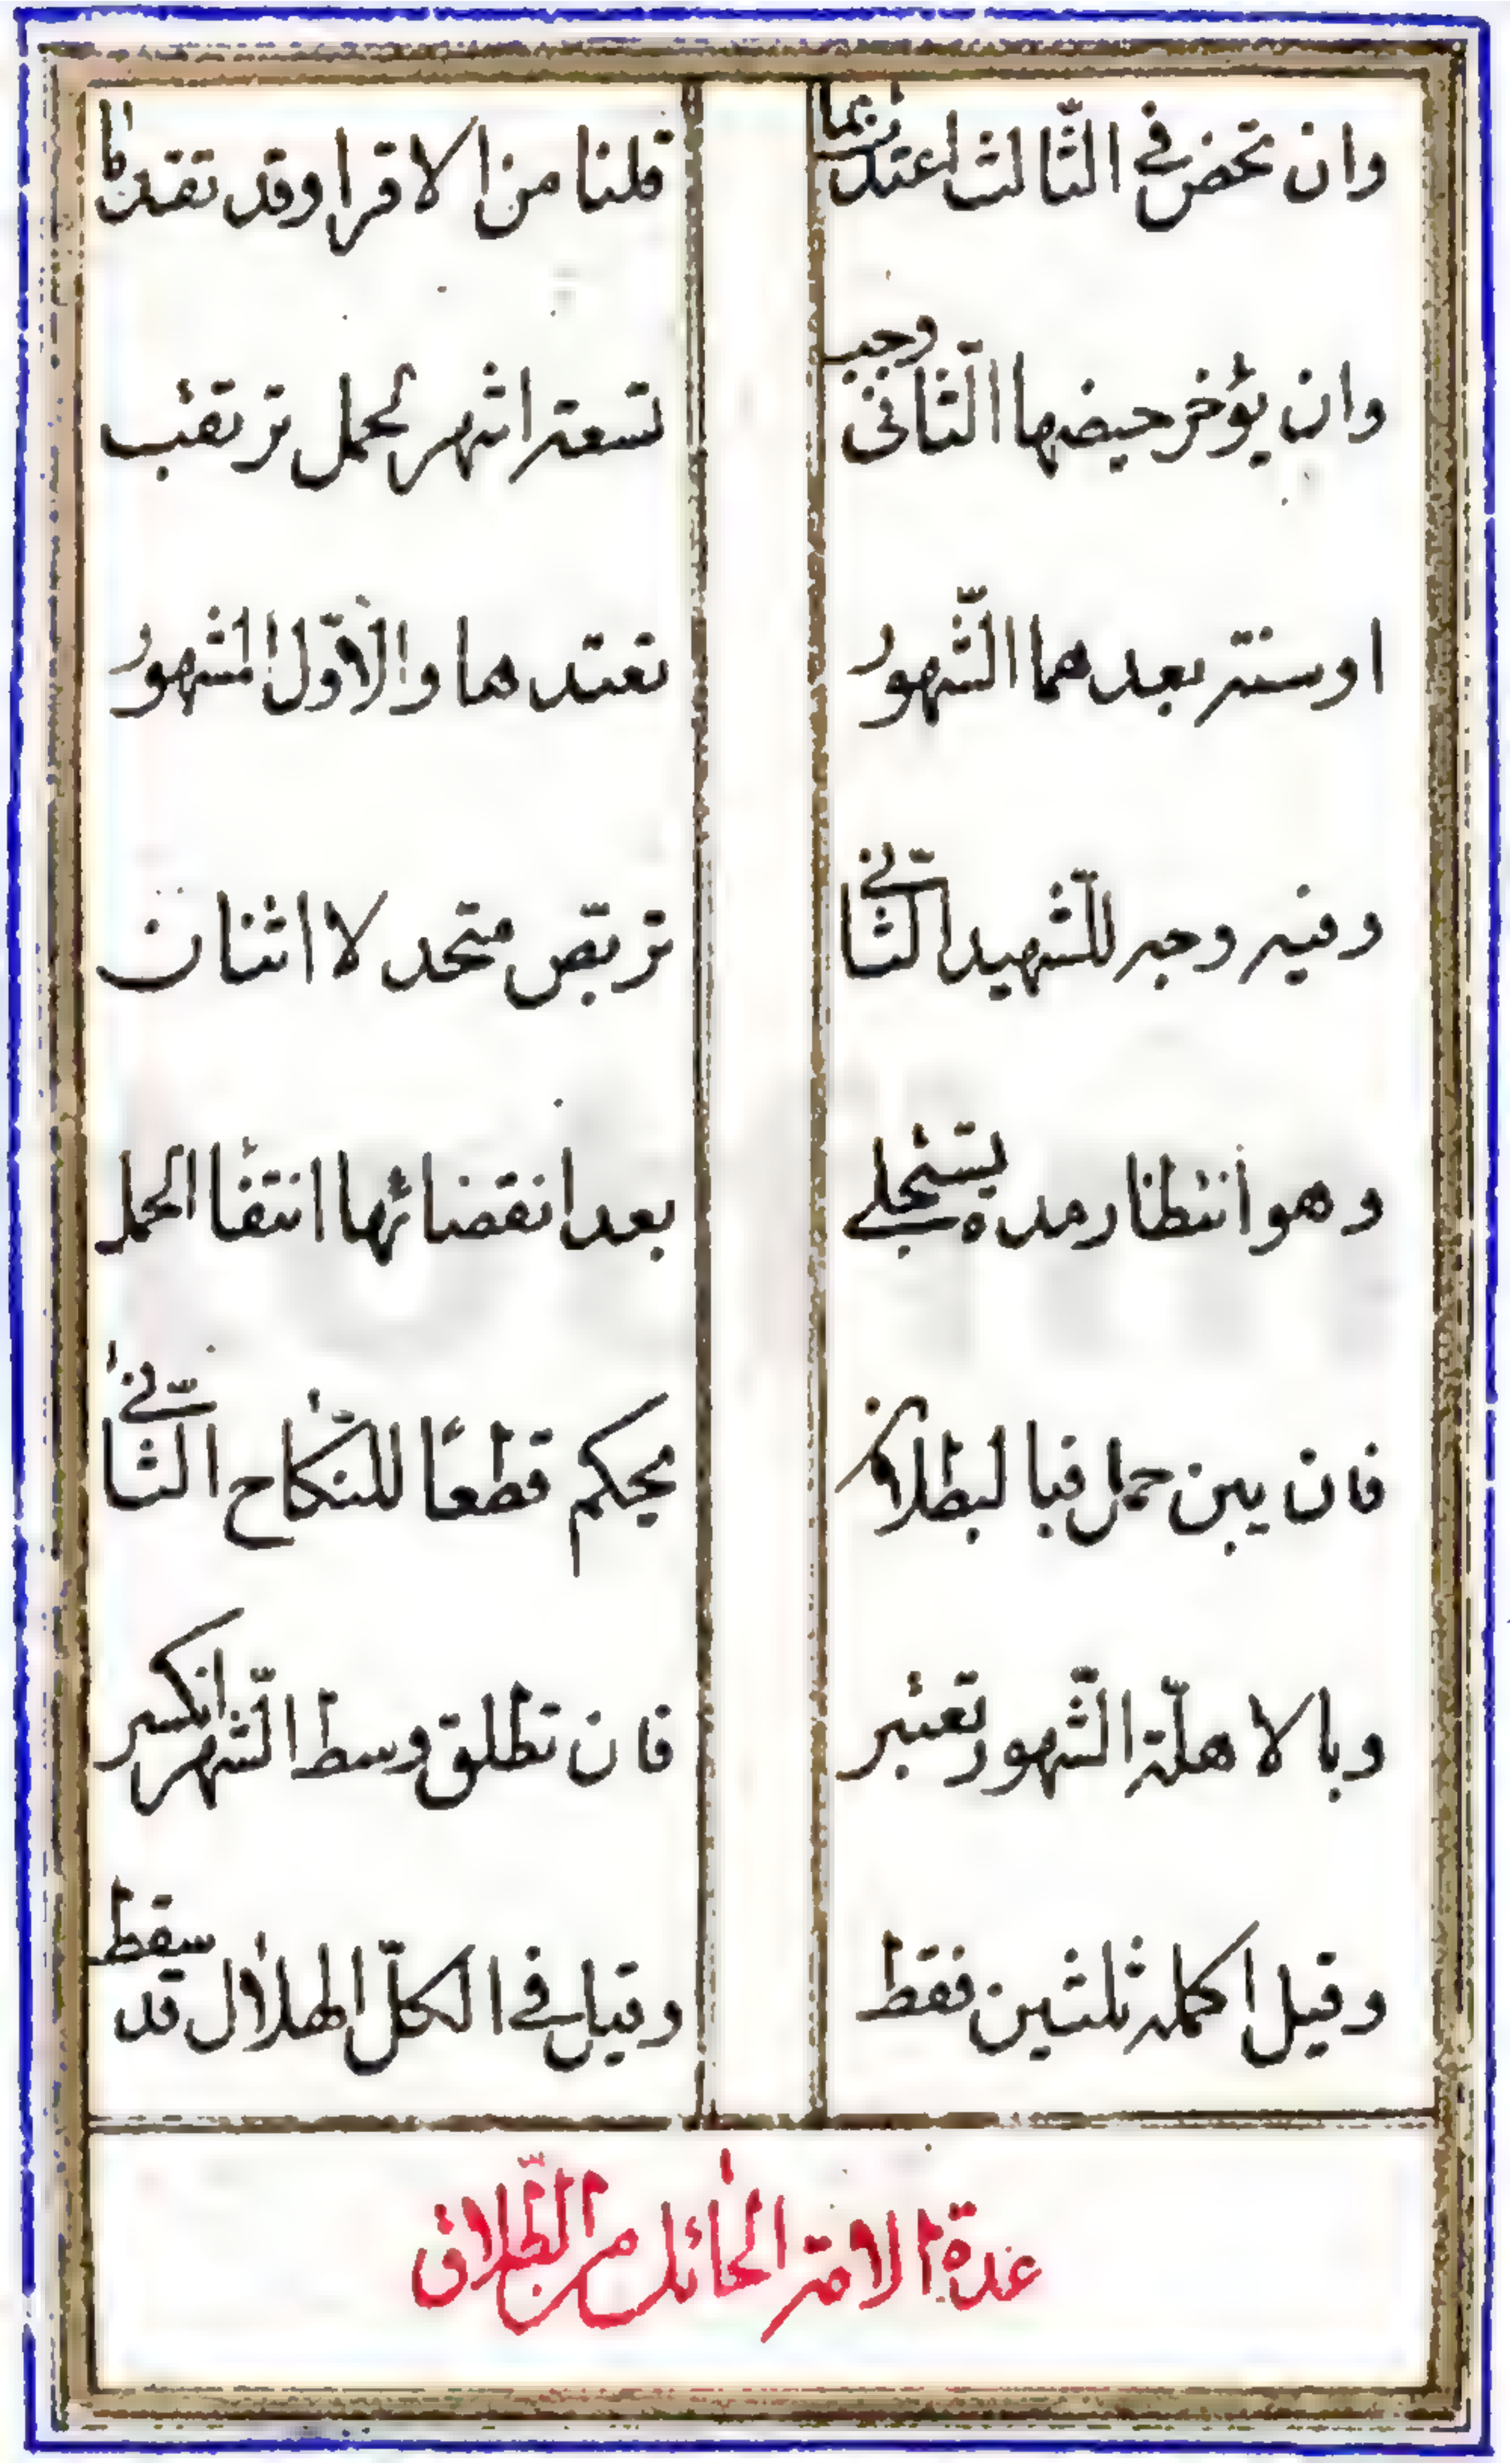 وان تحض في الثّالث اعتدّت بما قلنا من الاقرا وقد تقدّما
وان يؤخر حيضها الثّانى وجب تسعة اشهر لحمل ترتقب
او سنة بعدهما الشّهور تعتدها والاوّل المشهور
وفيه وجه للشّهيد الثّاني تربّص متحد لا اثنان
وهو انتظار مدة يستجلي بعد انقضائها انتفا الحمل
فان يبن حمل فبالبطلان يحكم قطعًا للنّكاح الثّاني
وبالاهلّة الشّهور تعتبر فان تطلق وسط الشّهر انكسر
وقيل اكمله ثلثين فقط وقيل في الكلّ الهلال قد سقط
عدة الامة الحائل من الطّلاق